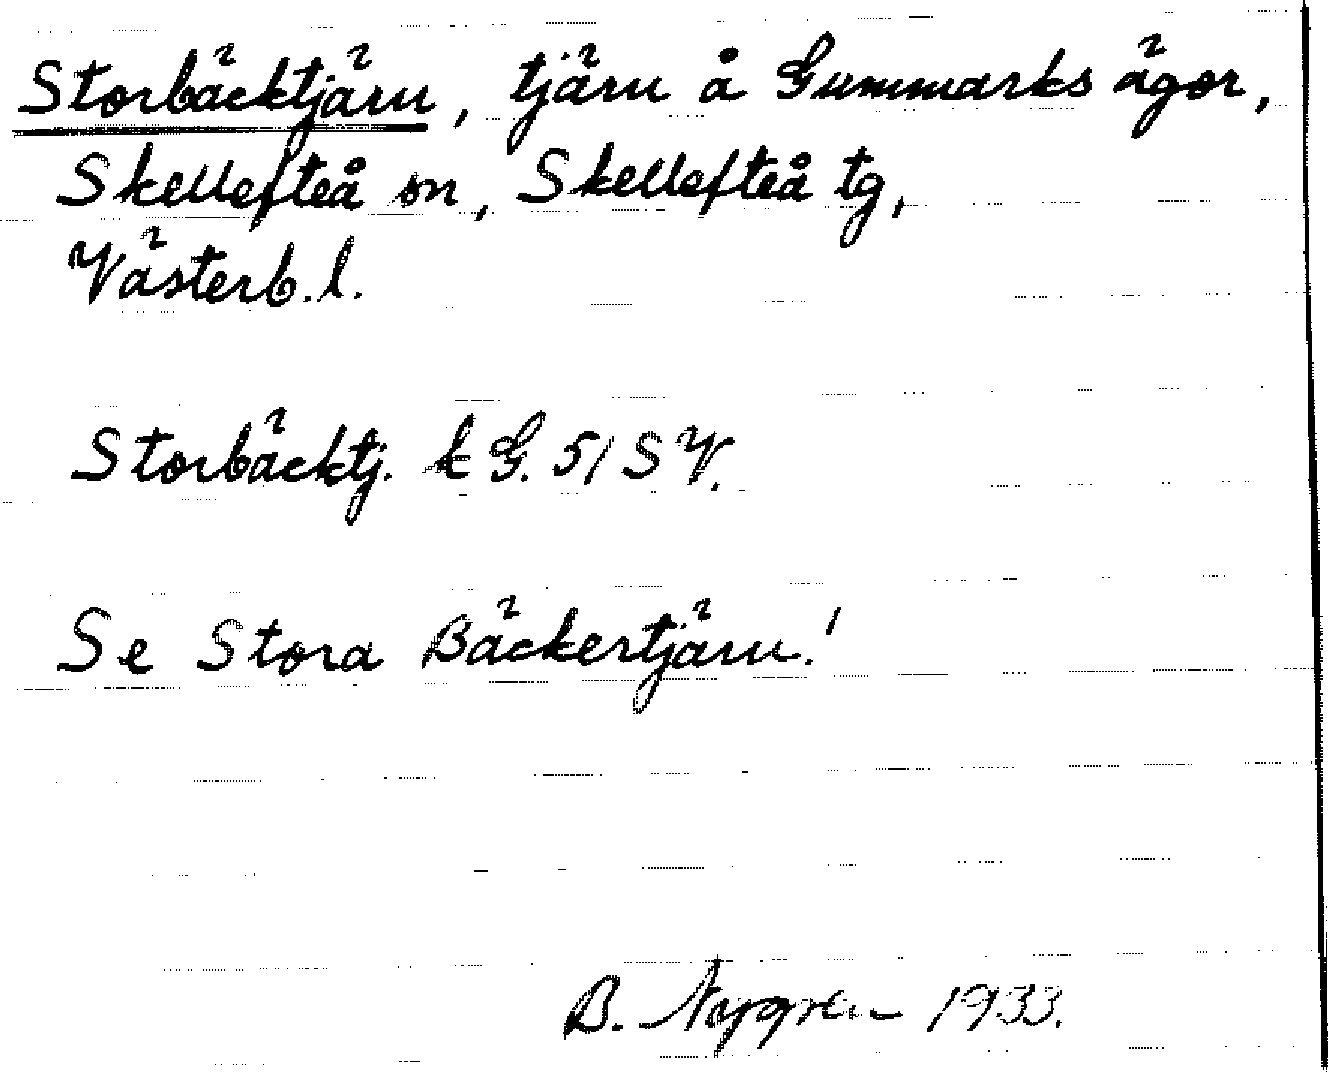 Storbäcktjärn, tjärn å Gummarks ägor,
Skellefteå sn, Skellefteå tg,
Västerb. l.
Storbäcktj. k G. 51 S V.
Se Stora Bäckertjärn!
B. Nygren 1933.